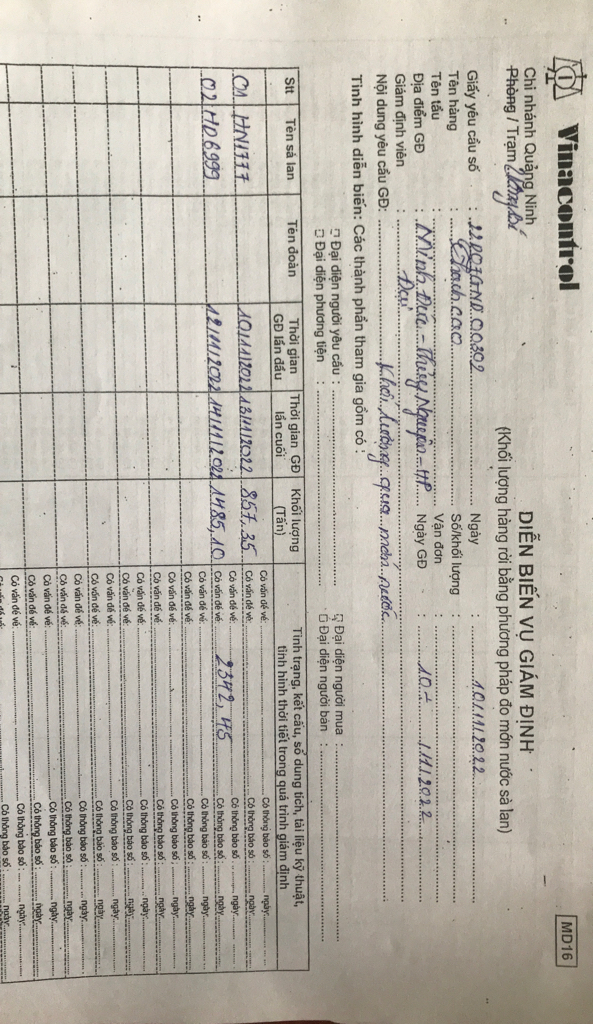 Vinacontrol
MD16
Chi nhánh Quảng Ninh
Phòng / Trạm
DIỄN BIẾN VỤ GIÁM ĐỊNH
(Khối lượng hàng rời bằng phương pháp đo món nước sà lan)
Giấy yêu cầu số : Ngày : 10/11/2022
Tên hàng : Thạch cao Số/khối lượng :
Tên tầu : Vận đơn :
Địa điểm GĐ : Minh Đức - Thủy Nguyên - HP Ngày GĐ : 10 - /11/2022
Giám định viên : Đại
Nội dung yêu cầu GĐ: Khối lượng qua món nước
Tình hình diễn biến: Các thành phần tham gia gồm có :
Đại diện người yêu cầu : Đại diện người mua :
Đại diện phương tiện : Đại diện người bán :
Stt Tên sà lan Tên đoàn Thời gian GĐ lần đầu Thời gian GĐ lần cuối Khối lượng (Tấn) Tình trạng, kết cấu, sổ dung tích, tài liệu kỹ thuật, tình hình thời tiết trong quá trình giám định
Có vấn đề về: Có thông báo số : ngày:
01 HN1777 10/11/2022 13/11/2022 857,35 Có vấn đề về: Có thông báo số : ngày:
Có vấn đề về: Có thông báo số : ngày:
02 HD6999 12/11/2022 14/11/2022 1485,10 2342,45 Có vấn đề về: Có thông báo số : ngày:
Có vấn đề về: Có thông báo số : ngày:
Có vấn đề về: Có thông báo số : ngày:
Có vấn đề về: Có thông báo số : ngày:
Có vấn đề về: Có thông báo số : ngày:
Có vấn đề về: Có thông báo số : ngày:
Có vấn đề về: Có thông báo số : ngày:
Có vấn đề về: Có thông báo số : ngày:
Có vấn đề về: Có thông báo số : ngày:
Có vấn đề về: Có thông báo số : ngày:
Có vấn đề về: Có thông báo số : ngày:
Có vấn đề về: Có thông báo số : ngày:
Có vấn đề về: Có thông báo số : ngày: